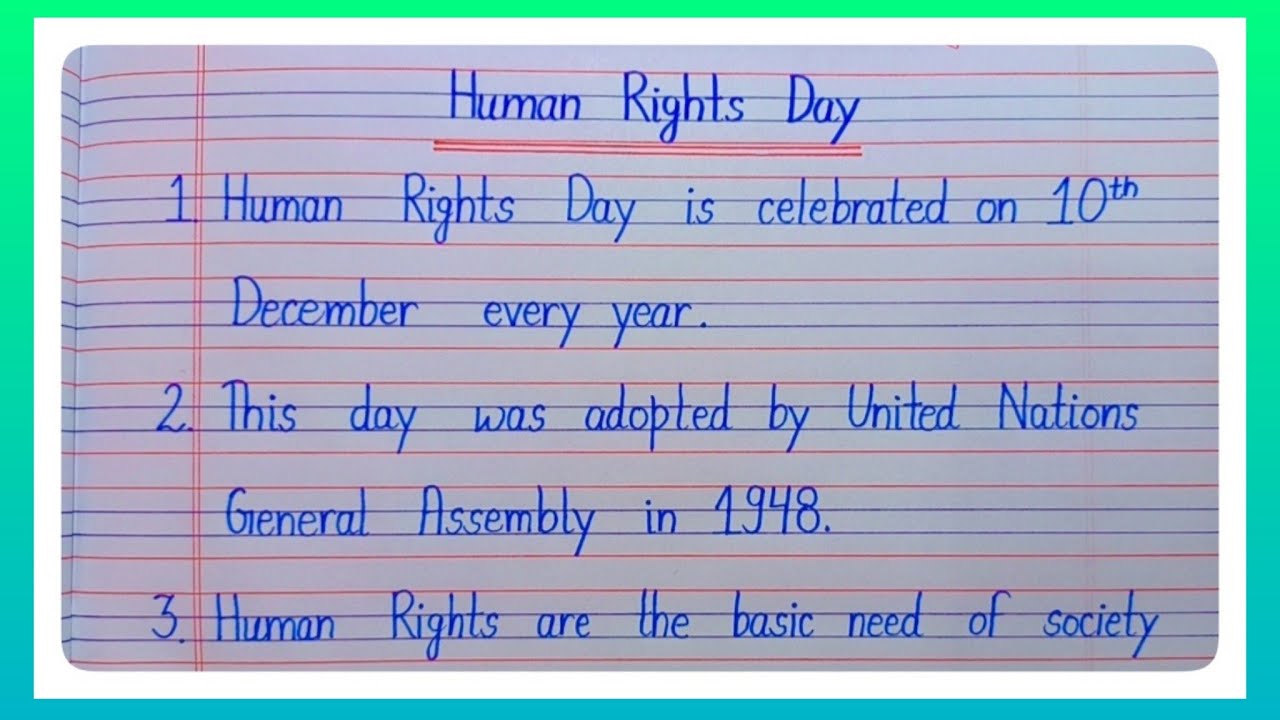 Human Rights Day
1. Human Rights Day is celebrated on 10th
December every year.
2. This day was adopted by United Nations
General Assembly in 1948.
3. Human Rights are the basic need of society